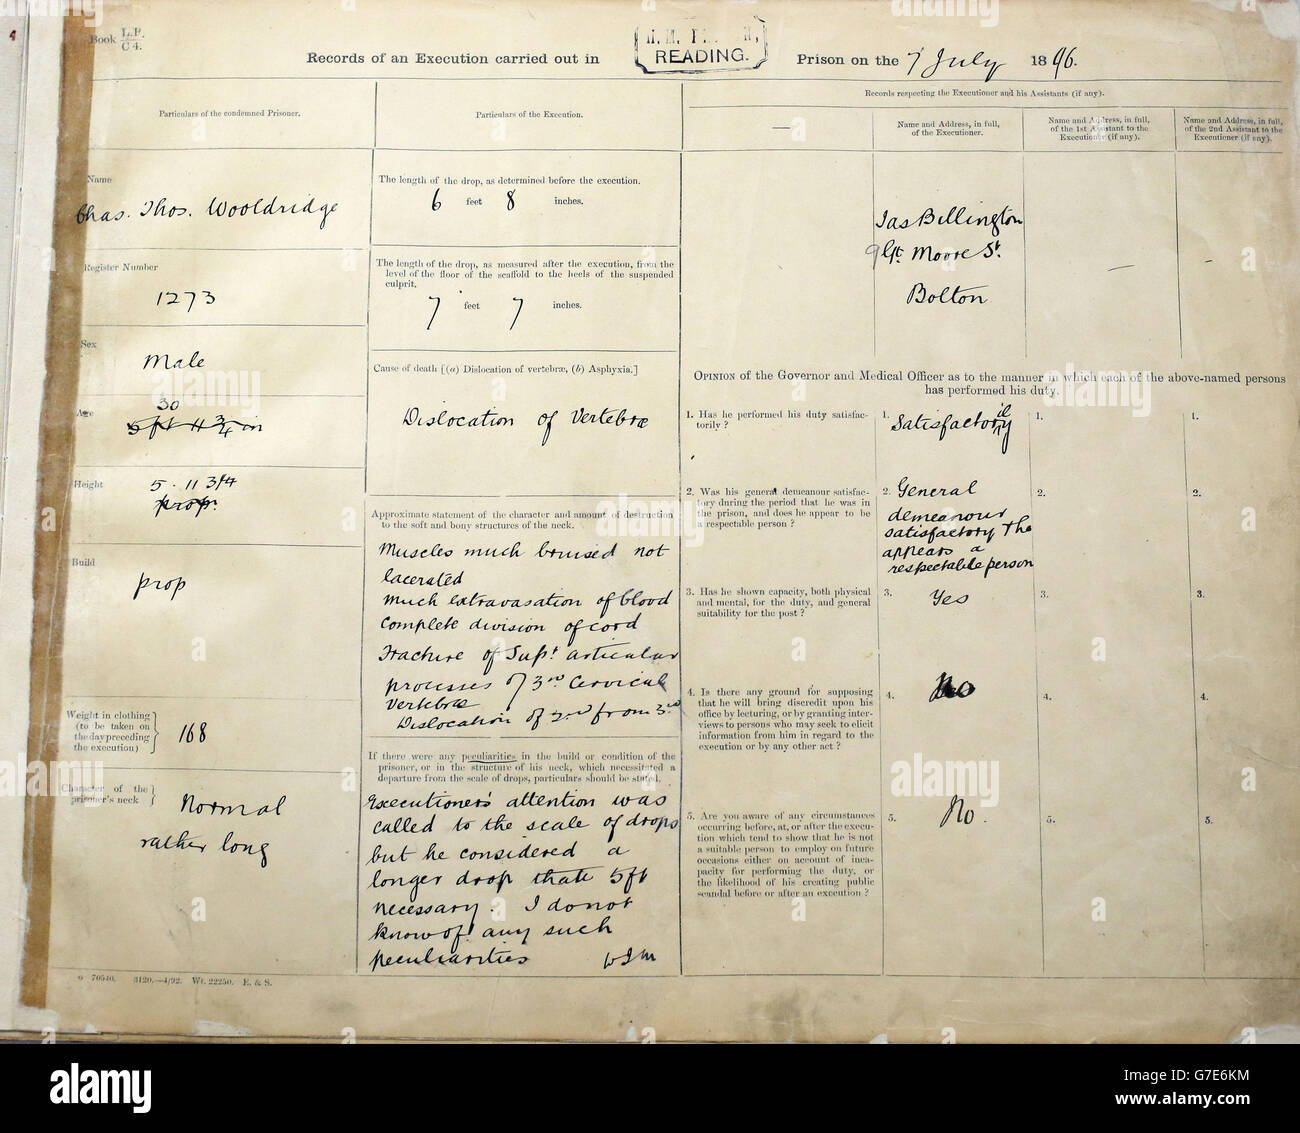 Book L.P.
C 4.
Records of an Execution carried out in
H. M. P
READING.
Prison on the 7 July 1896.
Particulars of the condemned Prisoner.
Name
Chas. Thos. Wooldridge
Register Number
1273
Sex
Male
Age
30
5 ft 11 3/4 in
Height
5 . 11 3/4
prop.
Build
prop
Weight in clothing
(to be taken on
the day preceding
the execution)
168
Character of the
prisoner's neck
Normal
rather long
Particulars of the Execution.
The length of the drop, as determined before the execution.
6 feet 8 inches.
The length of the drop, as measured after the execution, from the
level of the floor of the scaffold to the heels of the suspended
culprit.
7 feet 7 inches.
Cause of death [(a) Dislocation of vertebræ, (b) Asphyxia.]
Dislocation of Vertebræ
Approximate statement of the character and amount of destruction
to the soft and bony structures of the neck.
Muscles much bruised not
lacerated
Much extravasation of blood
Complete division of cord
Fracture of Supr articular
processes of 3rd Cervical
Vertebræ
Dislocation of 2nd from 3rd
If there were any peculiarities in the build or condition of the
prisoner, or in the structure of his neck, which necessitated a
departure from the scale of drops, particulars should be stated.
Executioner's attention was
called to the scale of drops
but he considered a
longer drop than 5ft
necessary. I do not
know of any such
peculiarities
Records respecting the Executioner and his Assistants (if any).
—
Name and Address, in full,
of the Executioner.
Name and Address, in full,
of the 1st Assistant to the
Executioner (if any).
Name and Address, in full,
of the 2nd Assistant to the
Executioner (if any).
Jas Billington
9 Gt. Moore St.
Bolton
—
—
OPINION of the Governor and Medical Officer as to the manner in which each of the above-named persons
has performed his duty.
1. Has he performed his duty satisfac-
torily ?
1. Satisfactorily
1.
1.
2. Was his general demeanour satisfac-
tory during the period that he was in
the prison, and does he appear to be
a respectable person ?
2. General
demeanour
satisfactory & he
appears a
respectable person
2.
2.
3. Has he shown capacity, both physical
and mental, for the duty, and general
suitability for the post ?
3. Yes
3.
3.
4. Is there any ground for supposing
that he will bring discredit upon his
office by lecturing, or by granting inter-
views to persons who may seek to elicit
information from him in regard to the
execution or by any other act ?
4. No
4.
4.
5. Are you aware of any circumstances
occurring before, at, or after the execu-
tion which tend to show that he is not
a suitable person to employ on future
occasions either on account of inca-
pacity for performing the duty, or
the likelihood of his creating public
scandal before or after an execution ?
5. No.
5.
5.
o 70540. 3120.—4/92. Wt. 22250. E. & S.
alamy
Image ID: G7E6KM
www.alamy.com